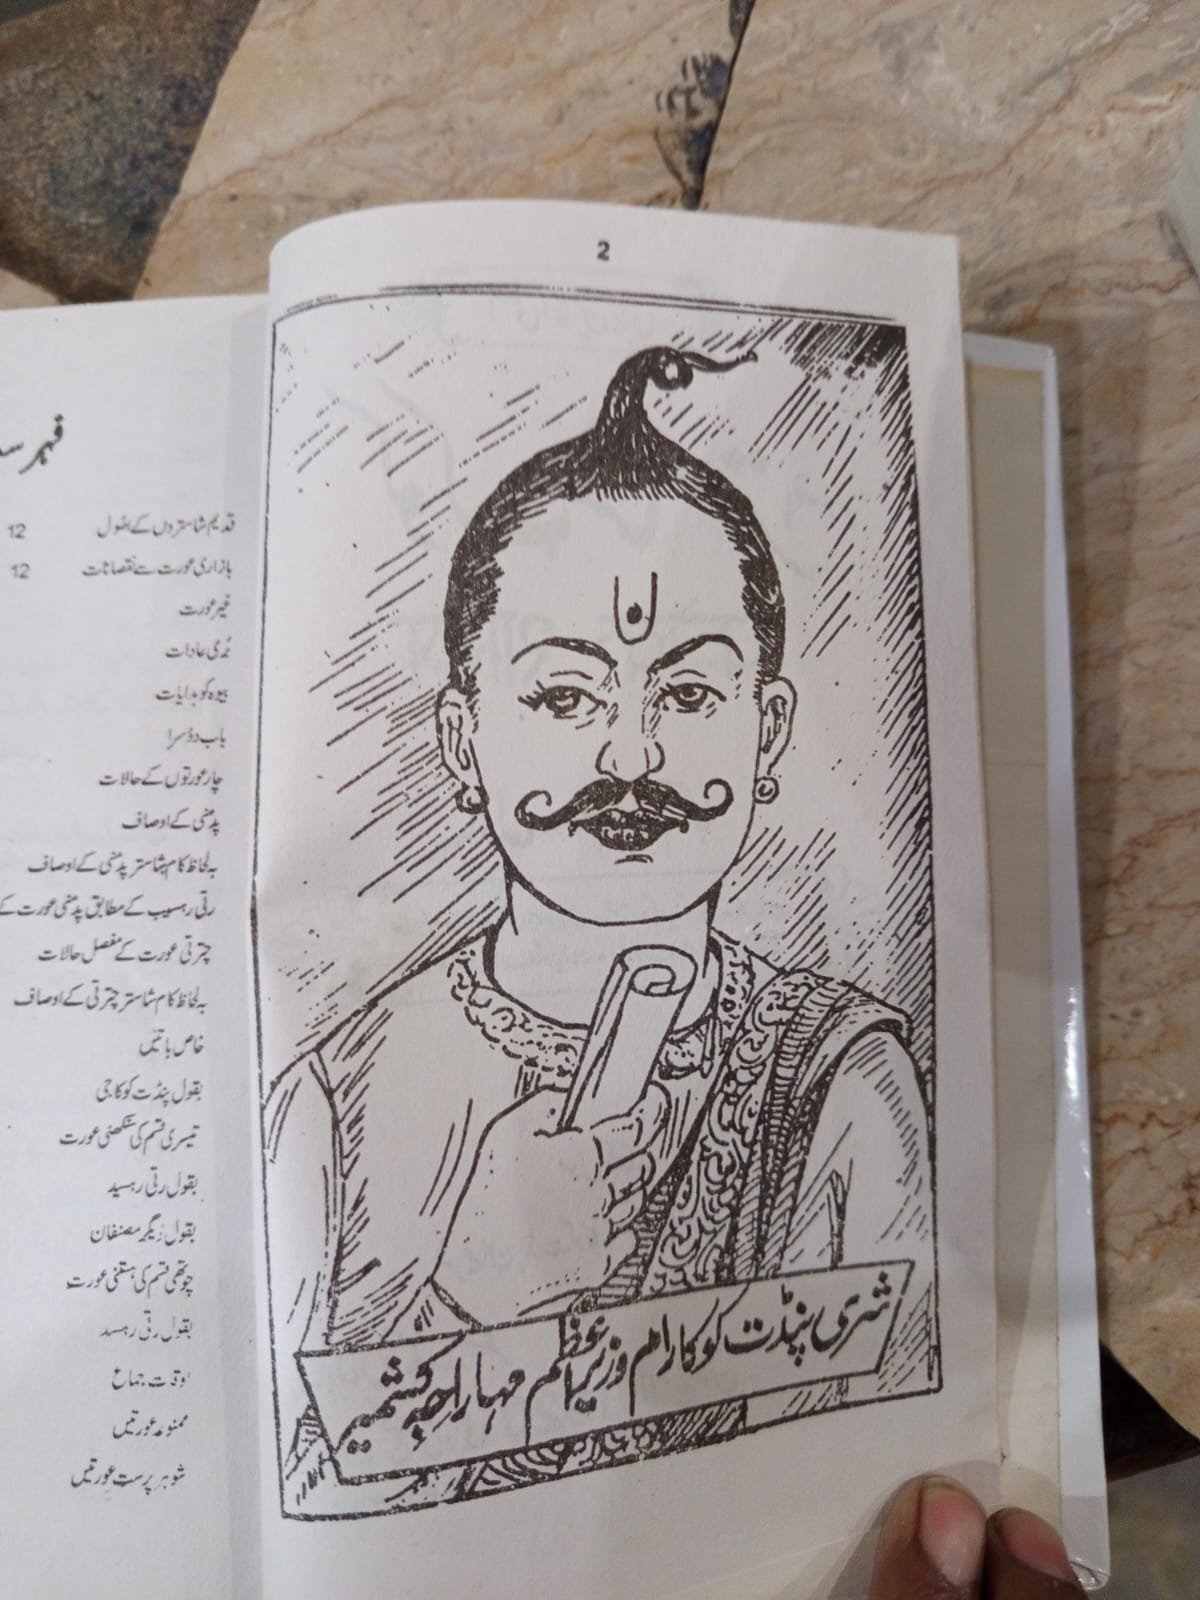 2
شری پنڈت کوکا رام وزیراعظم مہاراجہ کشمیر
فہرست
قدیم شاستروں کے اصول 12
بازاری عورت سے نقصانات 12
غیر عورت
بُری عادات
بیوہ کو ہدایات
باب دوسرا
چار عورتوں کے حالات
پدمنی کے اوصاف
بہ لحاظ کام شاستر پدمنی کے اوصاف
رتی رہسیہ کے مطابق پدمنی عورت کے
چترنی عورت کے مفصل حالات
بہ لحاظ کام شاستر چترنی کے اوصاف
خاص باتیں
بقول پنڈت کوکا جی
تیسری قسم کی سنکھنی عورت
بقول رتی رہسیہ
بقول دیگر مصنفان
چوتھی قسم کی ہستنی عورت
بقول رتی رہسیہ
اوقات جماع
ممنوعہ عورتیں
شوہر پرست عورتیں